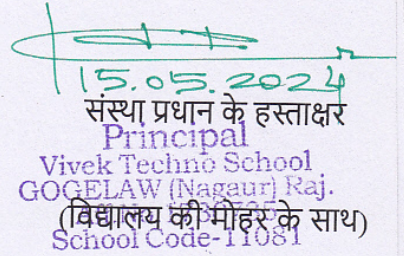 15.05.2024
संस्था प्रधान के हस्ताक्षर
Principal
Vivek Techno School
GOGELAW (Nagaur) Raj.
(विद्यालय की मोहर के साथ)
School Code-11081